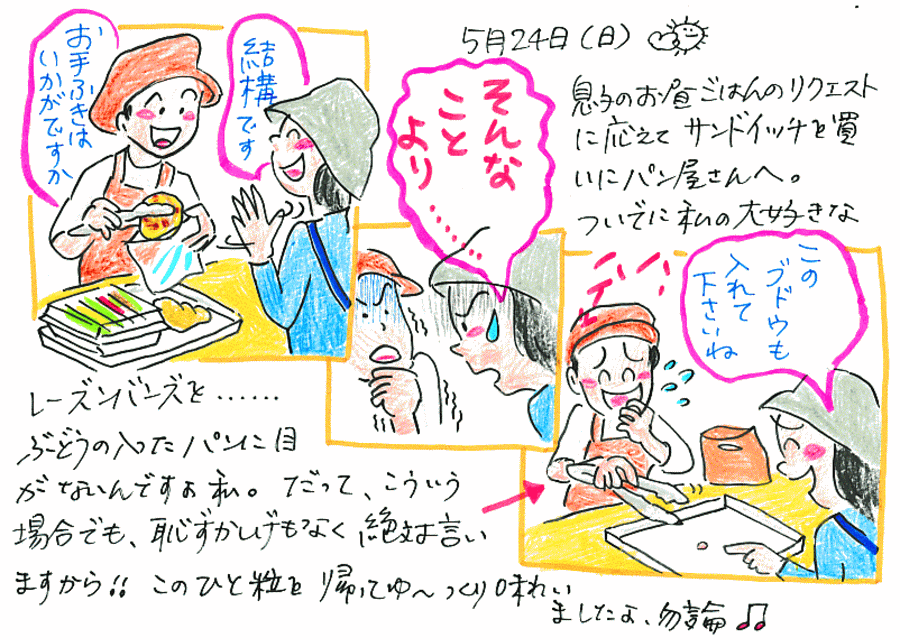 5月24日(日)
息子のお昼ごはんのリクエスト
に応えて サンドイッチを買
いにパン屋さんへ。
ついでに私の大好きな
レーズンバンズを……
お手ふきは
いかがですか
結構です
そんな
こと
より……
この
ブドウも
入れて
下さいね
デハハ
ぶどうの入ったパンに目
がないんですよ私。だって、こういう
場合でも、恥ずかしげもなく絶対言い
ますから!! このひと粒を帰ってゆ〜っくり味わい
ましたよ、勿論♫